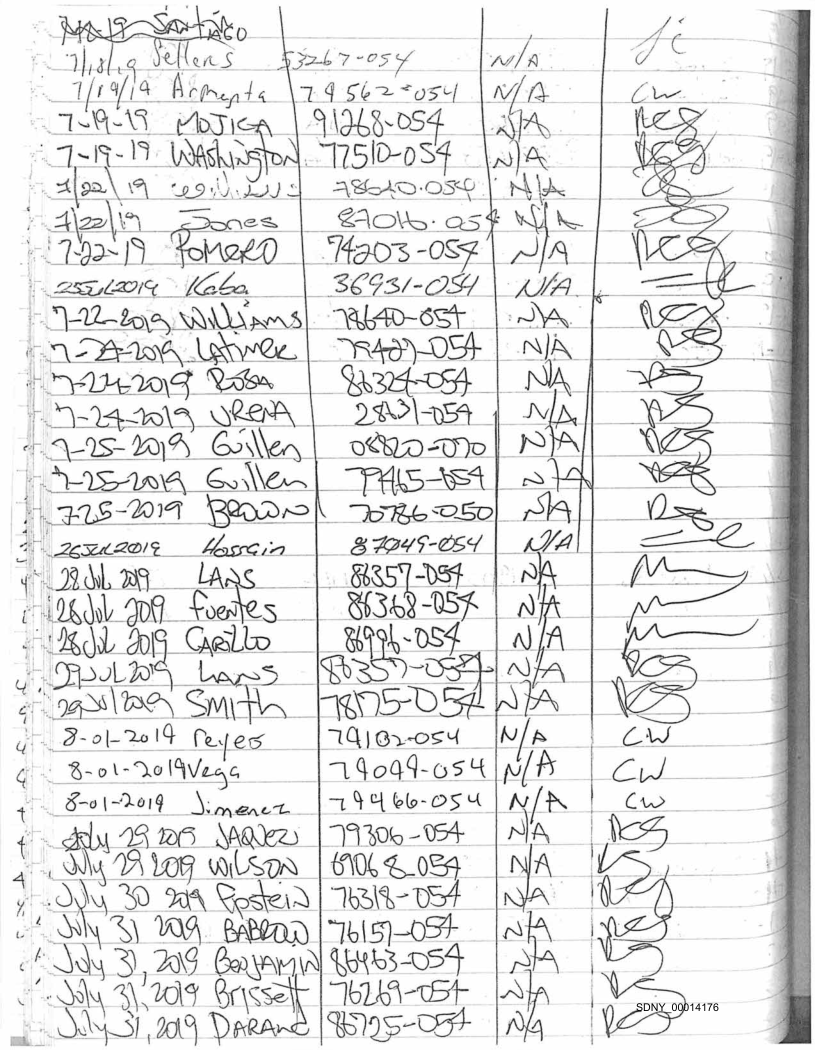 7-18-19 SANTIAGO
7/18/19 Sellers 53267-054 N/A JC
7/19/19 Armenta 79562-054 N/A CW
7-19-19 MOJICA 91268-054 N/A
7-19-19 WASHINGTON 77510-054 N/A
7/22/19 78640-054 N/A
7/22/19 Jones 87016-054 N/A
7-22-19 ROMERO 74203-054 N/A
25JUL2019 Kaba 36931-054 N/A
7-22-2019 WILLIAMS 78640-054 N/A
7-24-2019 LATIMER 79427-054 N/A
7-24-2019 ROSA 86324-054 N/A
7-24-2019 URENA 28631-054 N/A
7-25-2019 Guillen 08820-070 N/A
7-25-2019 Guillen 79465-054 N/A
7-25-2019 BROWN 70786-050 N/A
26JUL2019 Hossain 87049-054 N/A
28 Jul 2019 LANS 86357-054 N/A
28 Jul 2019 fuentes 86368-054 N/A
28 Jul 2019 CARILLO 86996-054 N/A
29 JUL 2019 LANS 86357-054 N/A
29 Jul 2019 SMITH 78175-054 N/A
8-01-2019 reyes 79102-054 N/A CW
8-01-2019 Vega 79049-054 N/A CW
8-01-2019 Jimenez 79466-054 N/A CW
July 29 2019 JAQUEZ 79306-054 N/A
July 29 2019 WILSON 69068-054 N/A
July 30 2019 Epstein 76318-054 N/A
July 31 2019 BABROW 76157-054 N/A
July 31, 2019 BENJAMIN 86463-054 N/A
July 31, 2019 Brissett 76269-054 N/A
July 31, 2019 DARANC 86725-054 N/A
SDNY_00014176